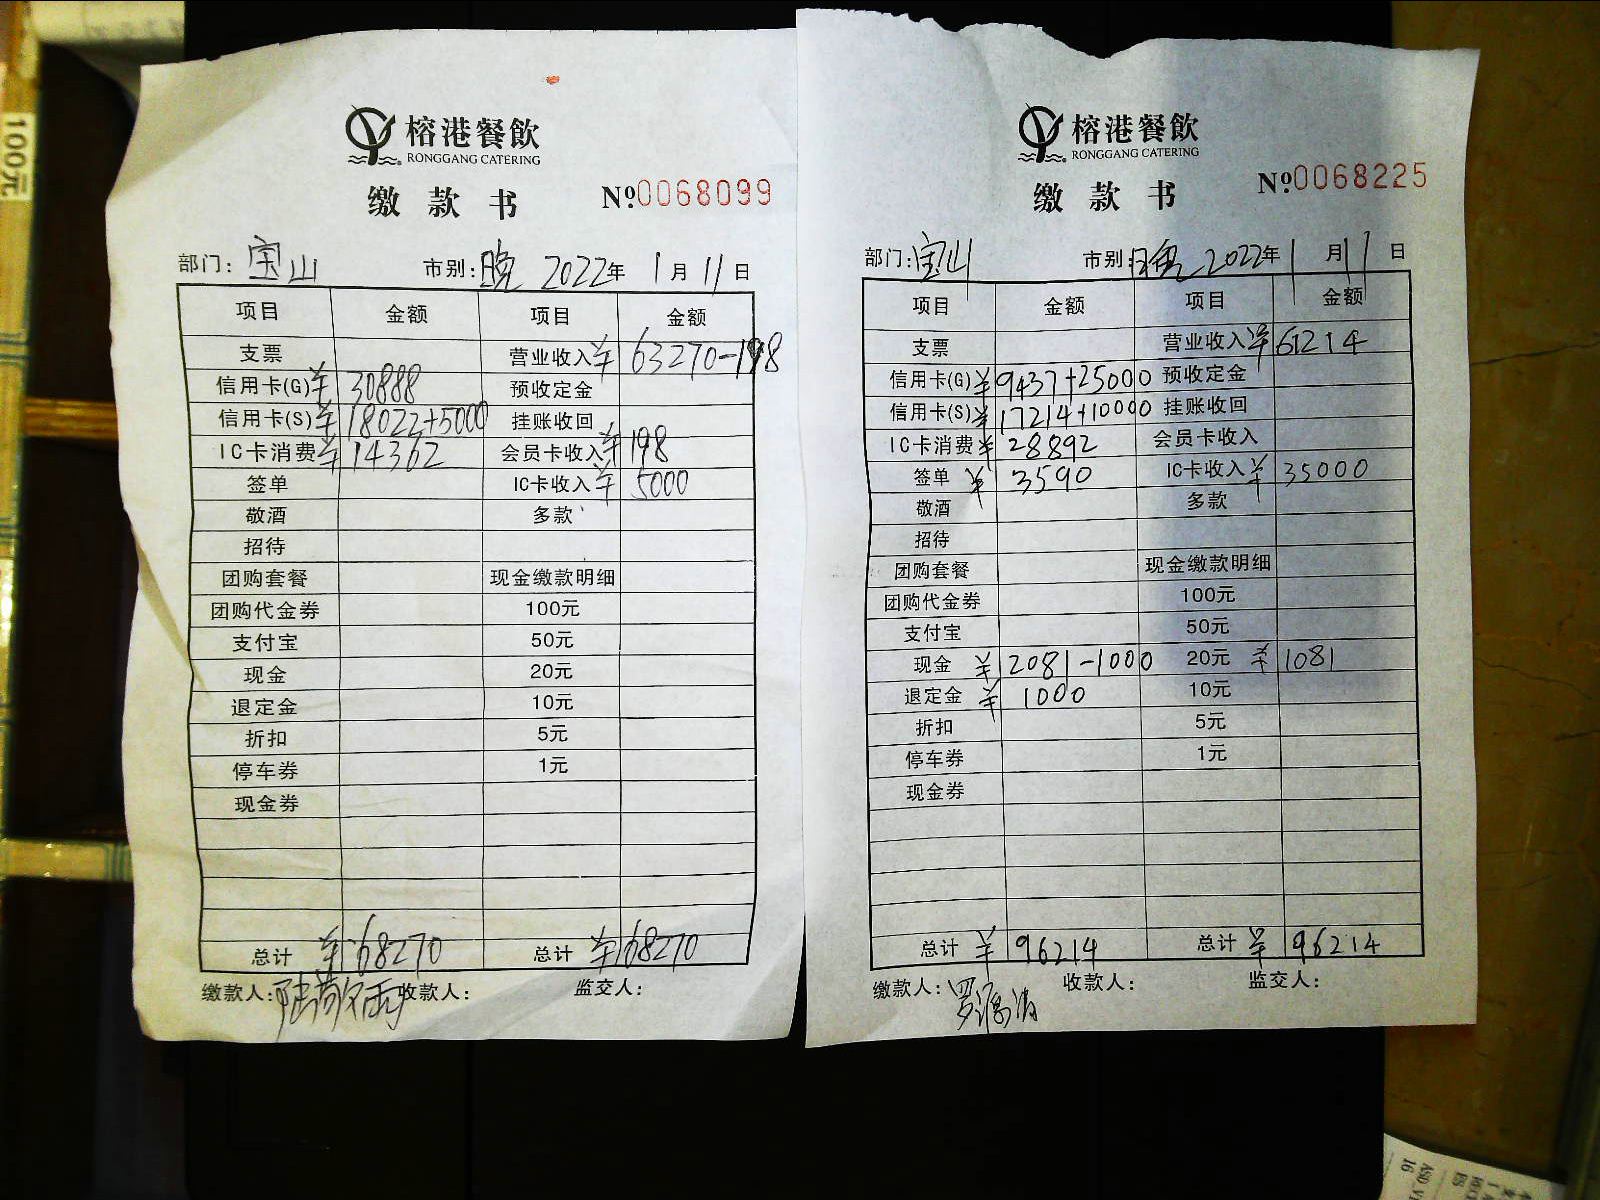 100元
榕港餐飲
RONGGANG CATERING
缴款书 №0068099
部门: 宝山 市别: 晚 2022年 1月11日
项目 金额 项目 金额
支票 营业收入 ¥ 63270-198
信用卡(G) ¥ 30888 预收定金
信用卡(S) ¥ 18022+5000 挂账收回
IC卡消费 ¥ 14362 会员卡收入 ¥ 198
签单 IC卡收入 ¥ 5000
敬酒 多款
招待
团购套餐 现金缴款明细
团购代金券 100元
支付宝 50元
现金 20元
退定金 10元
折扣 5元
停车券 1元
现金券
总计 ¥ 68270 总计 ¥ 68270
缴款人: 收款人: 监交人:
榕港餐飲
RONGGANG CATERING
缴款书 №0068225
部门: 宝山 市别: 晚 2022年 1月11日
项目 金额 项目 金额
支票 营业收入 ¥ 61214
信用卡(G) ¥ 9437+25000 预收定金
信用卡(S) ¥ 17214+10000 挂账收回
IC卡消费 ¥ 28892 会员卡收入
签单 ¥ 3590 IC卡收入 ¥ 35000
敬酒 多款
招待
团购套餐 现金缴款明细
团购代金券 100元
支付宝 50元
现金 ¥ 2081-1000 20元 ¥ 1081
退定金 ¥ 1000 10元
折扣 5元
停车券 1元
现金券
总计 ¥ 96214 总计 ¥ 96214
缴款人: 收款人: 监交人: